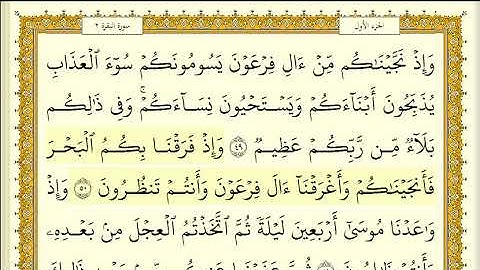 الجزء الأول
سورة البقرة ٢
وَإِذْ نَجَّيْنَـٰكُم مِّنْ ءَالِ فِرْعَوْنَ يَسُومُونَكُمْ سُوٓءَ ٱلْعَذَابِ
يُذَبِّحُونَ أَبْنَآءَكُمْ وَيَسْتَحْيُونَ نِسَآءَكُمْ ۚ وَفِى ذَٰلِكُم
بَلَآءٌ مِّن رَّبِّكُمْ عَظِيمٌ ٤٩ وَإِذْ فَرَقْنَا بِكُمُ ٱلْبَحْرَ
فَأَنجَيْنَـٰكُمْ وَأَغْرَقْنَآ ءَالَ فِرْعَوْنَ وَأَنتُمْ تَنظُرُونَ ٥٠ وَإِذْ
وَٰعَدْنَا مُوسَىٰٓ أَرْبَعِينَ لَيْلَةً ثُمَّ ٱتَّخَذْتُمُ ٱلْعِجْلَ مِنۢ بَعْدِهِۦ